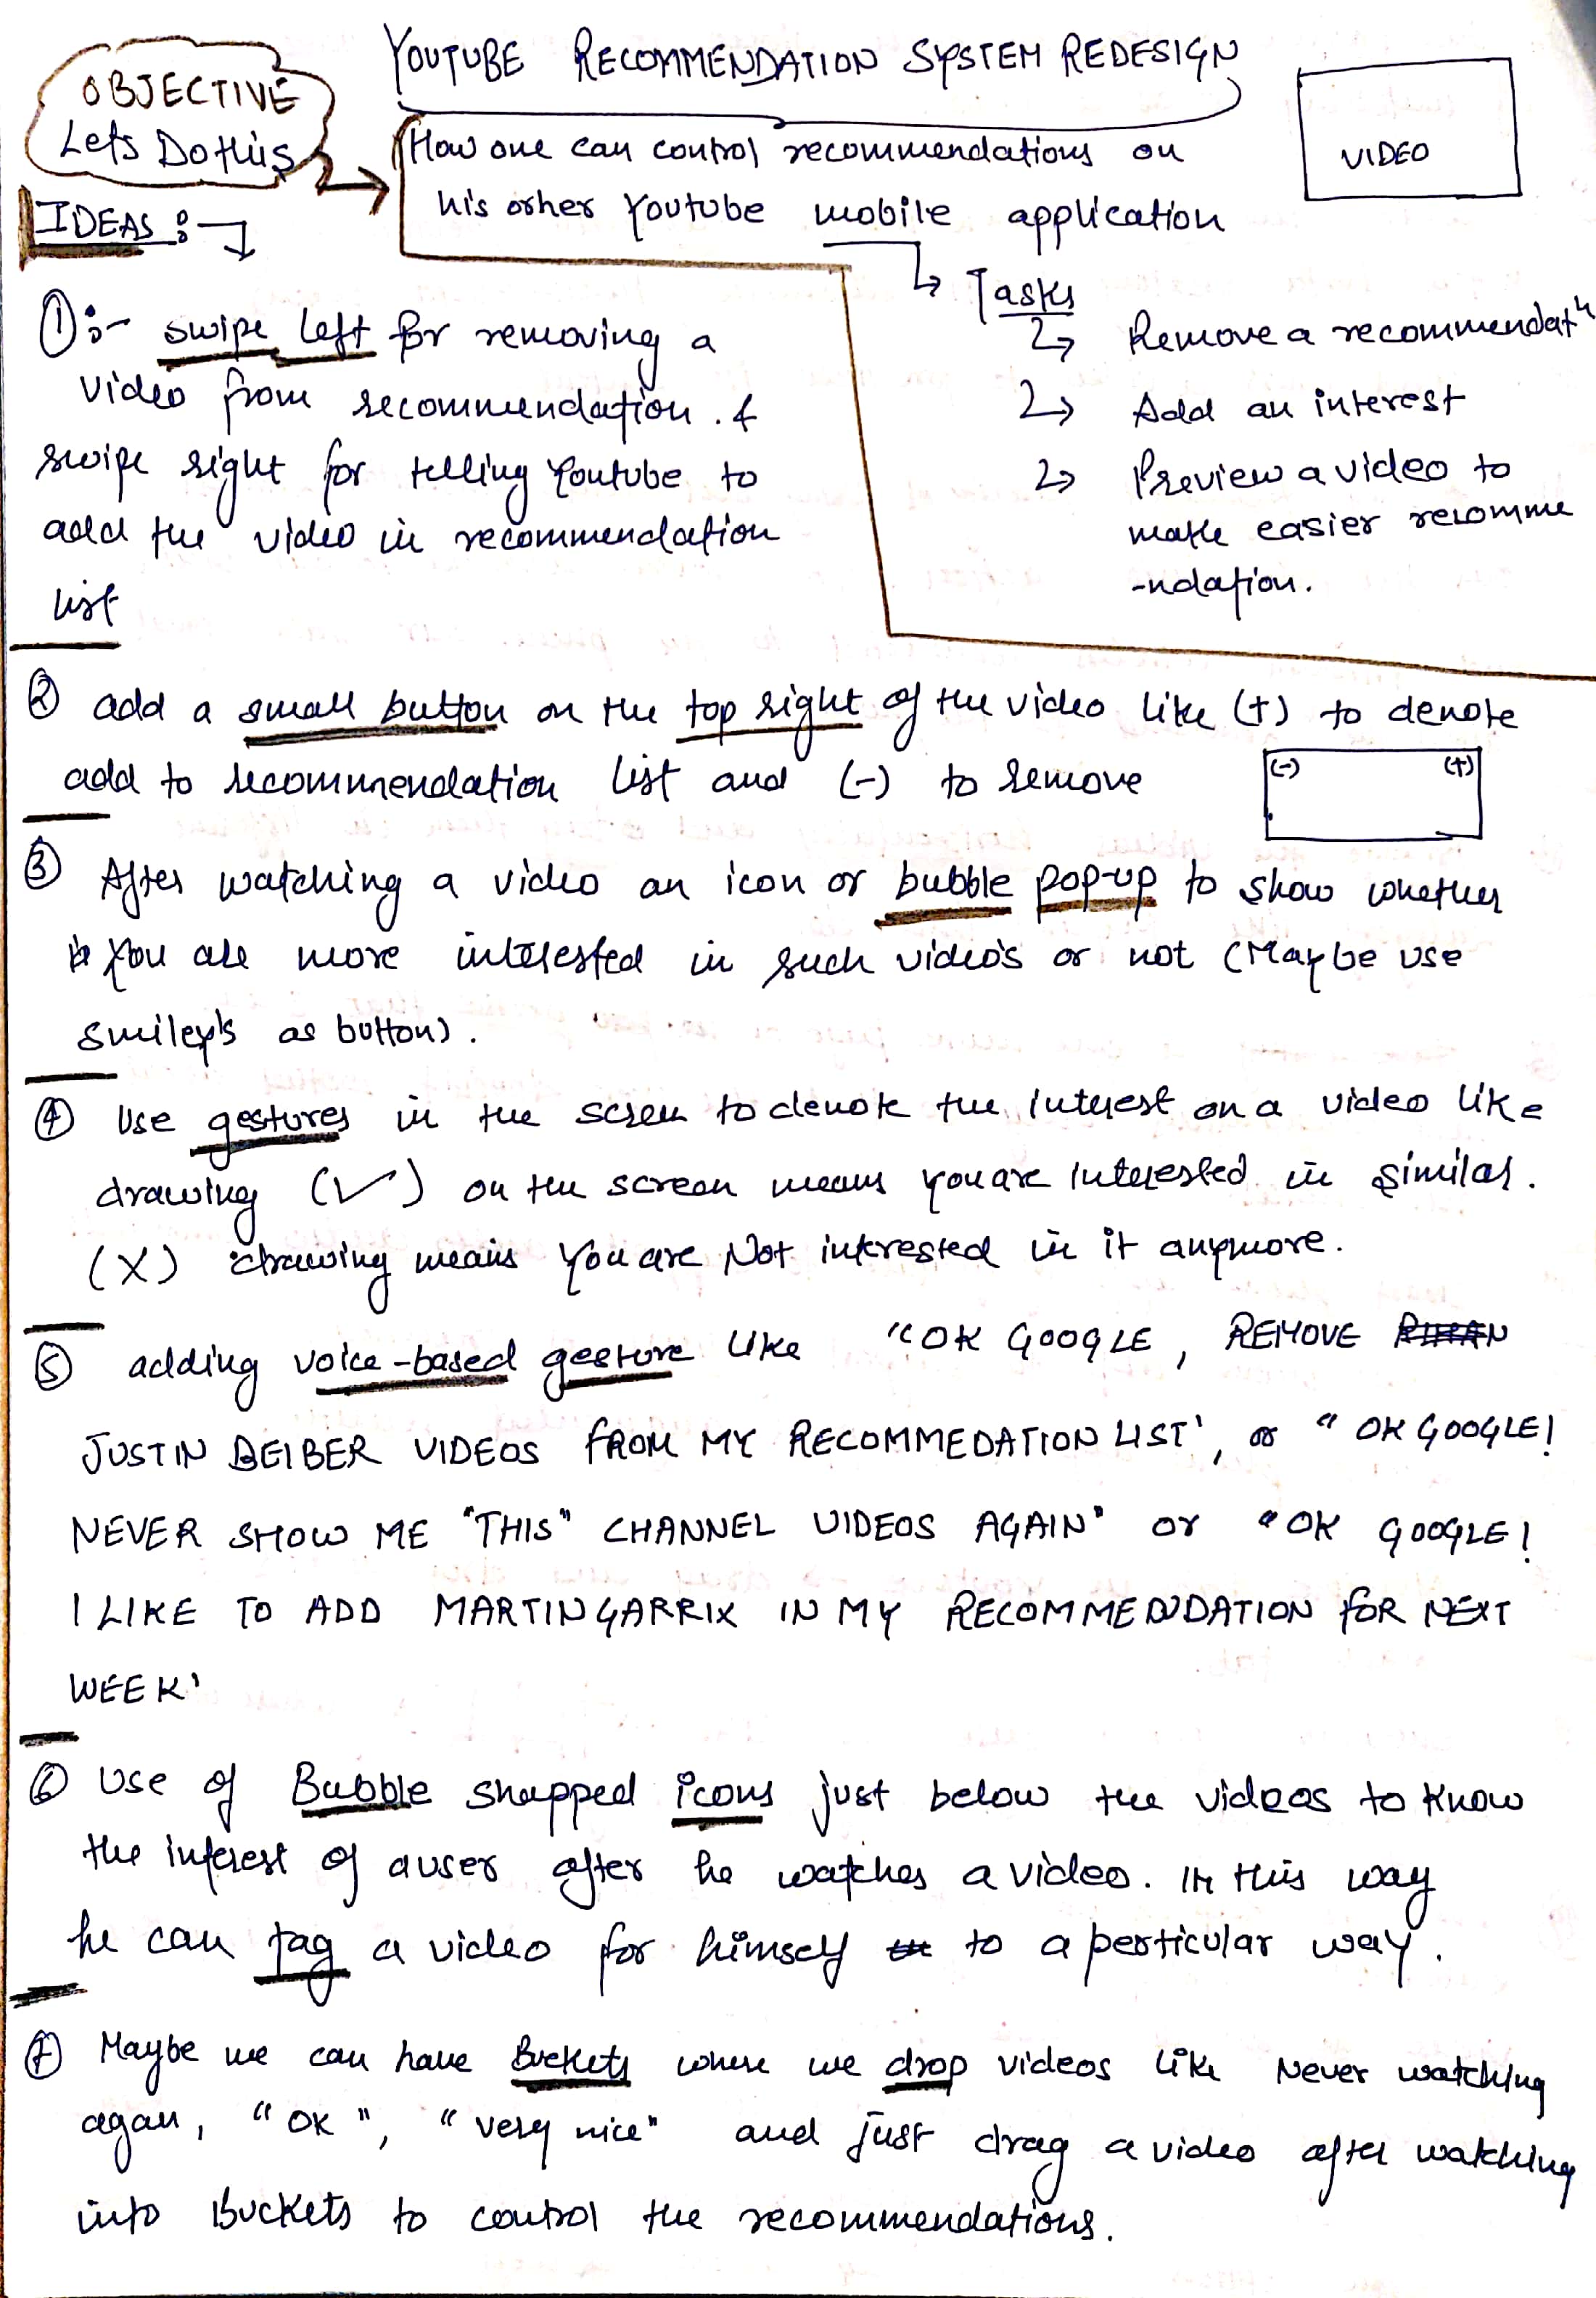 YOUTUBE RECOMMENDATION SYSTEM REDESIGN
OBJECTIVE
Lets Do this
How one can control recommendations on
his other Youtube mobile application
VIDEO
Tasks
Remove a recommendatn
Add an interest
Preview a video to
make easier recomme
-ndation.
IDEAS :
① :- swipe left for removing a
video from recommendation. &
swipe right for telling Youtube to
add the video in recommendation
list
② add a small button on the top right of the video like (+) to denote
add to recommendation list and (-) to remove
(-) (+)
③ After watching a video an icon or bubble pop-up to show whether
you are more interested in such video's or not (Maybe use
smiley's as button).
④ Use gestures in the screen to denote the interest on a video like
drawing (✓) on the screen means you are interested in similar.
(X) drawing means you are Not interested in it anymore.
⑤ adding voice-based gesture like "OK GOOGLE, REMOVE
JUSTIN BEIBER VIDEOS FROM MY RECOMMEDATION LIST', or "OK GOOGLE!
NEVER SHOW ME "THIS" CHANNEL VIDEOS AGAIN" or "OK GOOGLE!
I LIKE TO ADD MARTIN GARRIX IN MY RECOMMENDATION FOR NEXT
WEEK'
⑥ Use of Bubble shapped icons just below the videos to know
the interest of a user after he watches a video. In this way
he can tag a video for himself to a perticular way.
⑦ Maybe we can have Buckets where we drop videos like Never watching
again, "OK", "very nice" and just drag a video after watching
into Buckets to control the recommendations.